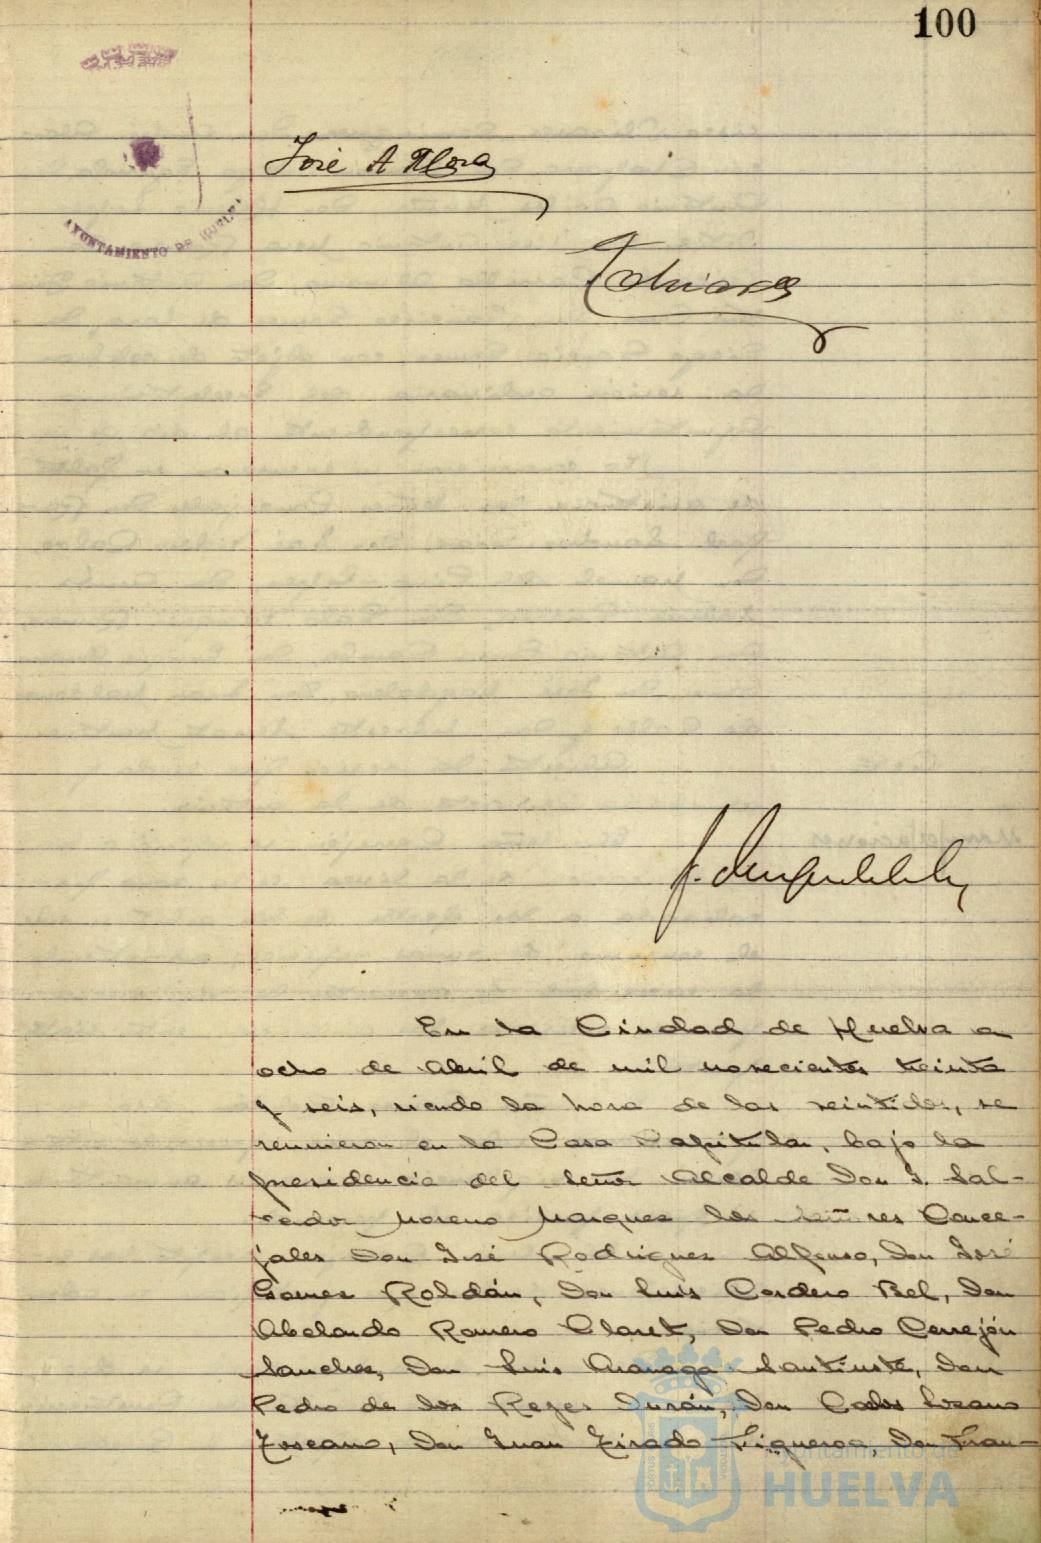 100
AYUNTAMIENTO DE HUELVA
José A Mora
En la Ciudad de Huelva a
ocho de Abril de mil novecientos treinta
y seis, siendo la hora de las veintidos, se
reunieron en la Casa Capitular, bajo la
presidencia del señor Alcalde Don J. Sal-
vador Moreno Marquez los señores Conce-
jales Don José Rodriguez Alfonso, Don José
Gomez Roldán, Don Luis Cordero Bel, Don
Abelardo Romero Claret, Don Pedro Cerrejón
Sanchez, Don Luis Santiuste, Don
Pedro de los Reyes Durán, Don Carlos Lozano
Toscano, Don Juan Tirado Figueroa, Don Fran-
Ayuntamiento de
HUELVA